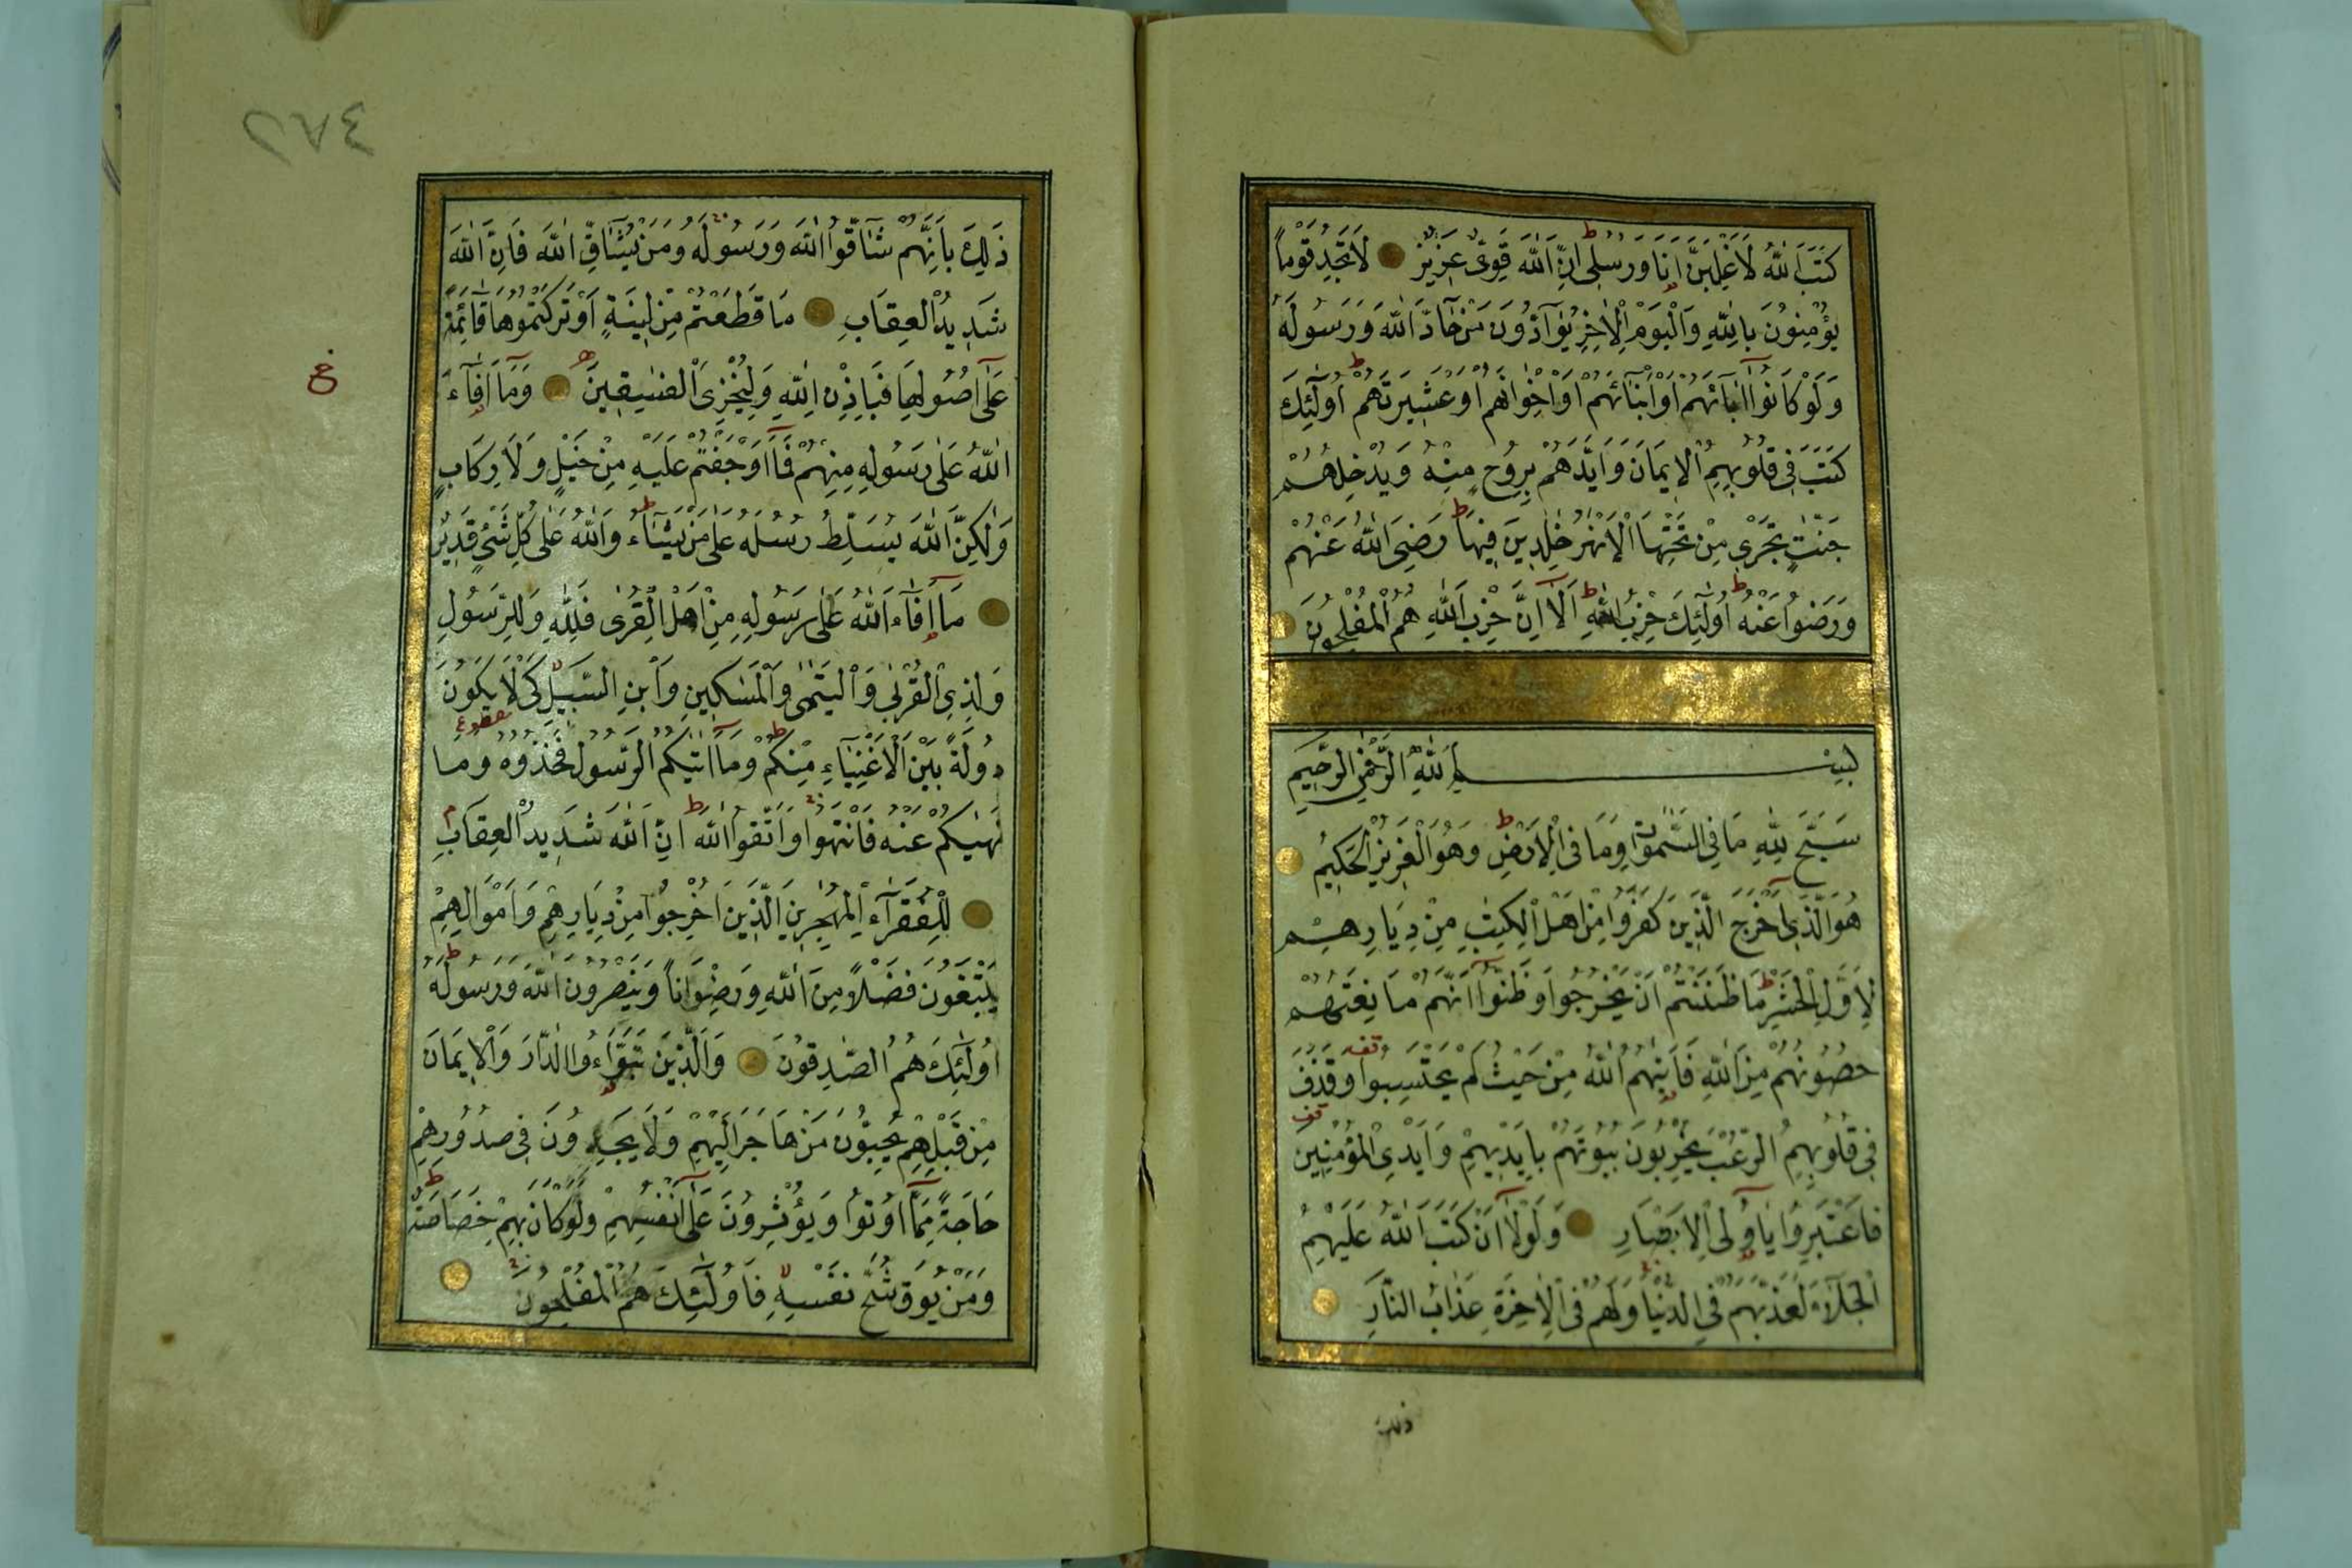 كَتَبَ اللّٰهُ لَاَغْلِبَنَّ اَنَا۬ وَرُسُلِىۜ اِنَّ اللّٰهَ قَوِىٌّ عَزِيزٌ لَا تَجِدُ قَوْمًا
يُؤْمِنُونَ بِاللّٰهِ وَالْيَوْمِ الْاٰخِرِ يُوَآدُّونَ مَنْ حَآدَّ اللّٰهَ وَرَسُولَهُ
وَلَوْ كَانُوٓا اٰبَآئَهُمْ اَوْ اَبْنَآئَهُمْ اَوْ اِخْوَانَهُمْ اَوْ عَشِيرَتَهُمْ ط اُولٰٓئِكَ
كَتَبَ فِى قُلُوبِهِمُ الْاِيمَانَ وَاَيَّدَهُمْ بِرُوحٍ مِنْهُ وَيُدْخِلُهُمْ
جَنّٰتٍ تَجْرِى مِنْ تَحْتِهَا الْاَنْهٰرُ خٰلِدِينَ فِيهَا ط رَضِىَ اللّٰهُ عَنْهُمْ
وَرَضُوا عَنْهُ ط اُولٰٓئِكَ حِزْبُ اللّٰهِ ط اَلَآ اِنَّ حِزْبَ اللّٰهِ هُمُ الْمُفْلِحُونَ
بِسْمِ اللّٰهِ الرَّحْمٰنِ الرَّحِيمِ
سَبَّحَ لِلّٰهِ مَا فِى السَّمٰوٰتِ وَمَا فِى الْاَرْضِ ط وَهُوَ الْعَزِيزُ الْحَكِيمُ
هُوَ الَّذِىٓ اَخْرَجَ الَّذِينَ كَفَرُوا مِنْ اَهْلِ الْكِتٰبِ مِنْ دِيَارِهِمْ
لِاَوَّلِ الْحَشْرِ ط مَا ظَنَنْتُمْ اَنْ يَخْرُجُوا وَظَنُّوٓا اَنَّهُمْ مَانِعَتُهُمْ
حُصُونُهُمْ مِنَ اللّٰهِ فَاَتٰيهُمُ اللّٰهُ مِنْ حَيْثُ لَمْ يَحْتَسِبُوا وَقَذَفَ
فِى قُلُوبِهِمُ الرُّعْبَ يُخْرِبُونَ بُيُوتَهُمْ بِاَيْدِيهِمْ وَاَيْدِى الْمُؤْمِنِينَ
فَاعْتَبِرُوا يَآ اُولِى الْاَبْصَارِ وَلَوْلَآ اَنْ كَتَبَ اللّٰهُ عَلَيْهِمُ
الْجَلَآءَ لَعَذَّبَهُمْ فِى الدُّنْيَا وَلَهُمْ فِى الْاٰخِرَةِ عَذَابُ النَّارِ
ذلك
٤٨٢
ذٰلِكَ بِاَنَّهُمْ شَآقُّوا اللّٰهَ وَرَسُولَهُ وَمَنْ يُشَآقِّ اللّٰهَ فَاِنَّ اللّٰهَ
شَدِيدُ الْعِقَابِ مَا قَطَعْتُمْ مِنْ لِينَةٍ اَوْ تَرَكْتُمُوهَا قَآئِمَةً
عَلٰٓى اُصُولِهَا فَبِاِذْنِ اللّٰهِ وَلِيُخْزِىَ الْفٰسِقِينَ وَمَآ اَفَآءَ
ع
اللّٰهُ عَلٰى رَسُولِهِ مِنْهُمْ فَمَآ اَوْجَفْتُمْ عَلَيْهِ مِنْ خَيْلٍ وَلَا رِكَابٍ
وَلٰكِنَّ اللّٰهَ يُسَلِّطُ رُسُلَهُ عَلٰى مَنْ يَشَآءُ ط وَاللّٰهُ عَلٰى كُلِّ شَىْءٍ قَدِيرٌ
مَآ اَفَآءَ اللّٰهُ عَلٰى رَسُولِهِ مِنْ اَهْلِ الْقُرٰى فَلِلّٰهِ وَلِلرَّسُولِ
وَلِذِى الْقُرْبٰى وَالْيَتٰمٰى وَالْمَسٰكِينِ وَابْنِ السَّبِيلِ كَىْ لَا يَكُونَ
دُولَةً بَيْنَ الْاَغْنِيَآءِ مِنْكُمْ ط وَمَآ اٰتٰيكُمُ الرَّسُولُ فَخُذُوهُ وَمَا
نَهٰيكُمْ عَنْهُ فَانْتَهُوا وَاتَّقُوا اللّٰهَ ط اِنَّ اللّٰهَ شَدِيدُ الْعِقَابِ م
لِلْفُقَرَآءِ الْمُهٰجِرِينَ الَّذِينَ اُخْرِجُوا مِنْ دِيَارِهِمْ وَاَمْوَالِهِمْ
يَبْتَغُونَ فَضْلًا مِنَ اللّٰهِ وَرِضْوَانًا وَيَنْصُرُونَ اللّٰهَ وَرَسُولَهُ ط
اُولٰٓئِكَ هُمُ الصّٰدِقُونَ وَالَّذِينَ تَبَوَّءُوا الدَّارَ وَالْاِيمَانَ
مِنْ قَبْلِهِمْ يُحِبُّونَ مَنْ هَاجَرَ اِلَيْهِمْ وَلَا يَجِدُونَ فِى صُدُورِهِمْ
حَاجَةً مِمَّآ اُوتُوا وَيُؤْثِرُونَ عَلٰٓى اَنْفُسِهِمْ وَلَوْ كَانَ بِهِمْ خَصَاصَةٌ ط
وَمَنْ يُوقَ شُحَّ نَفْسِهِ فَاُولٰٓئِكَ هُمُ الْمُفْلِحُونَ